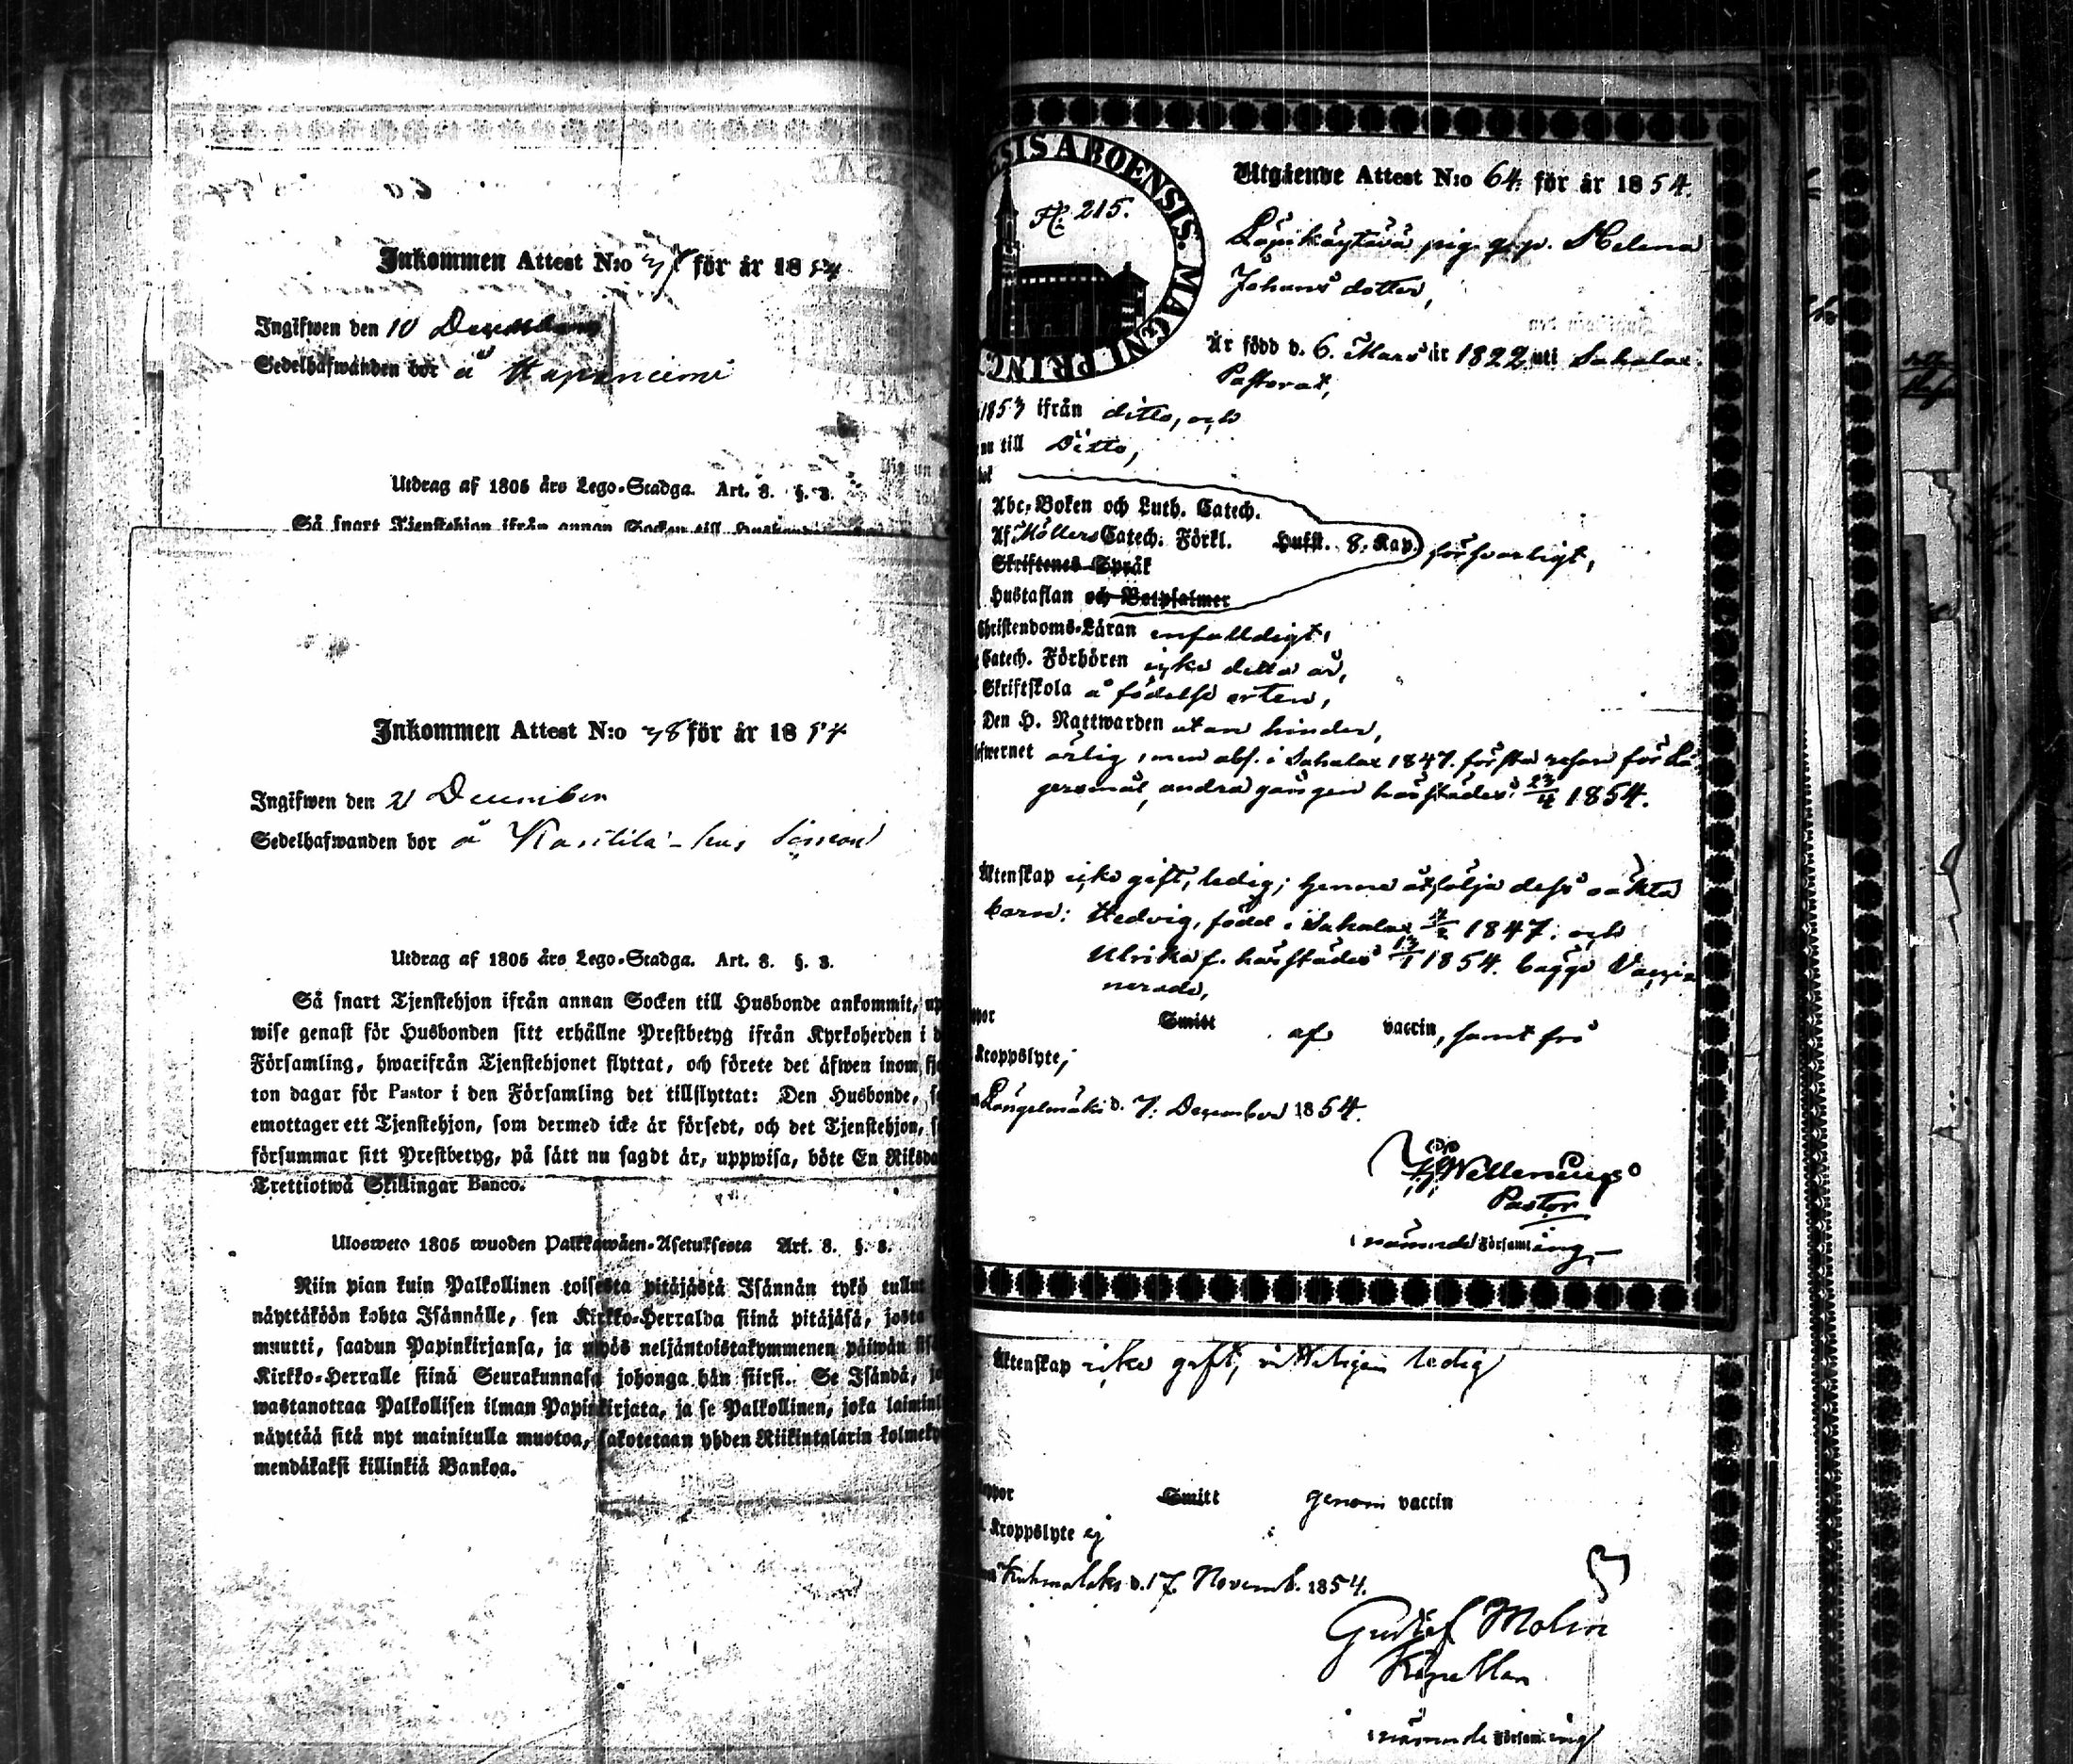 Inkommen Attest N:o 37 för år 1854
Ingifwen den 10 December
Sedelhafwanden bor å Haponiemi
Utdrag af 1805 års Lego-Stadga. Art. 8. §. 3.
Så snart Tjenstehjon ifrån annan Socken till Husbonde
Inkommen Attest N:o 38 för år 1854
Ingifwen den 21 December
Sedelhafwanden bor å Kantila hus
Utdrag af 1805 års Lego-Stadga. Art. 8. §. 3.
Så snart Tjenstehjon ifrån annan Socken till Husbonde ankommit, up
wise genast för Husbonden sitt erhållne Prestbetyg ifrån Kyrkoherden i d
Församling, hwarifrån Tjenstehjonet flyttat, och förete det äfwen inom fjo
ton dagar för Pastor i den Församling det tillflyttat: Den Husbonde, s
emottager ett Tjenstehjon, som dermed icke är försedt, och det Tjenstehjon, s
försummar sitt Prestbetyg, på sätt nu sagdt är, uppwisa, böte En Riksda
Trettiotwå Skillingar Banco.
Ulosweto 1805 wuoden Palkkawäen-Asetuksesta Art. 8. §. 3.
Niin pian kuin Palkollinen toisesta pitäjästä Isännän tykö tullut
näyttäköön kohta Isännälle, sen Kirkko-Herralda siinä pitäjäsä, josta
muutti, saadun Papinkirjansa, ja myös neljäntoistakymmenen päiwän sis
Kirkko-Herralle siinä Seurakunnasa johonga hän siirsi. Se Isändä, jo
wastanottaa Palkollisen ilman Papinkirjata, ja se Palkollinen, joka laiminl
näyttää sitä nyt mainitulla muotoa, sakotetaan yhden Riikintalarin kolmeky
mendäkaksi killinkiä Bankoa.
ESIS ABOENSIS. MAGNI PRINC
H. 215.
Utgående Attest N:o 64 för år 1854.
Löpikäytävä pig. q.p. Helena
Johans dotter,
Är född d. 6. Mars år 1822 uti Sahalax
Pastorat,
1853 ifrån ditto, och
nu till Ditto,
bok
Abc-Boken och Luth. Catech.
Af Möllers Catech. Förkl. Hufst. 8. Kap. försvarligt,
Skriftenes Språk
Hustaflan och Botpsalmer
Christendoms-Läran enfalldigt,
Catech. Förhören icke detta år,
Skriftskola å födelse orten,
Den H. Nattwarden utan hinder,
efwernet ärlig, men abs. i Sahalax 1847. första resan för Lä-
gersmål, andra gången härstädes 23/4 1854.
Äktenskap icke gift, ledig; henne åtfölja dess oäkta
barn: Hedvig, född i Sahalax 1847. och
Ulrika f. härstädes 13/1 1854. bägge Vacci
nerade,
ppor Smitt af vaccin, samt fri
Kroppslyte,
Längelmäki d. 7. December 1854.
Wellenius
Pastor
i nämnde Församling
Äktenskap icke gift, ledig
ppor Smitt genom vaccin
Kroppslyte ej
Kuhmalaks d. 17 Novemb. 1854.
Gustaf Molin
Kapellan
i nämnde Församling